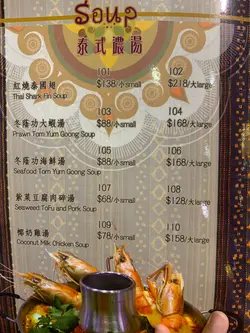 Soup
泰式濃湯
101 102
紅燒泰國翅 $138/小small $218/大large
Thai Shark Fin Soup
103 104
冬蔭功大蝦湯 $88/小small $168/大large
Prawn Tom Yum Goong Soup
105 106
冬蔭功海鮮湯 $88/小small $168/大large
Seafood Tom Yum Goong Soup
107 108
紫菜豆腐肉碎湯 $68/小small $128/大large
Seaweed Tofu and Pork Soup
109 110
椰奶雞湯 $78/小small $158/大large
Coconut Milk Chicken Soup